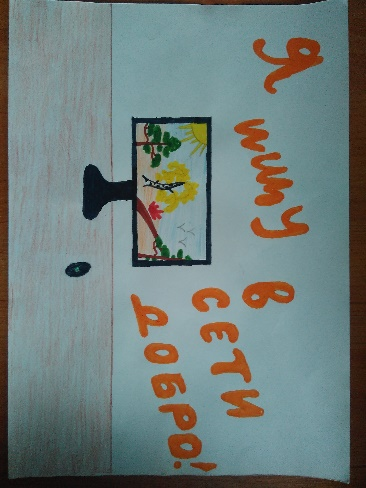 Я ищу в
СЕТИ
ДОБРО!